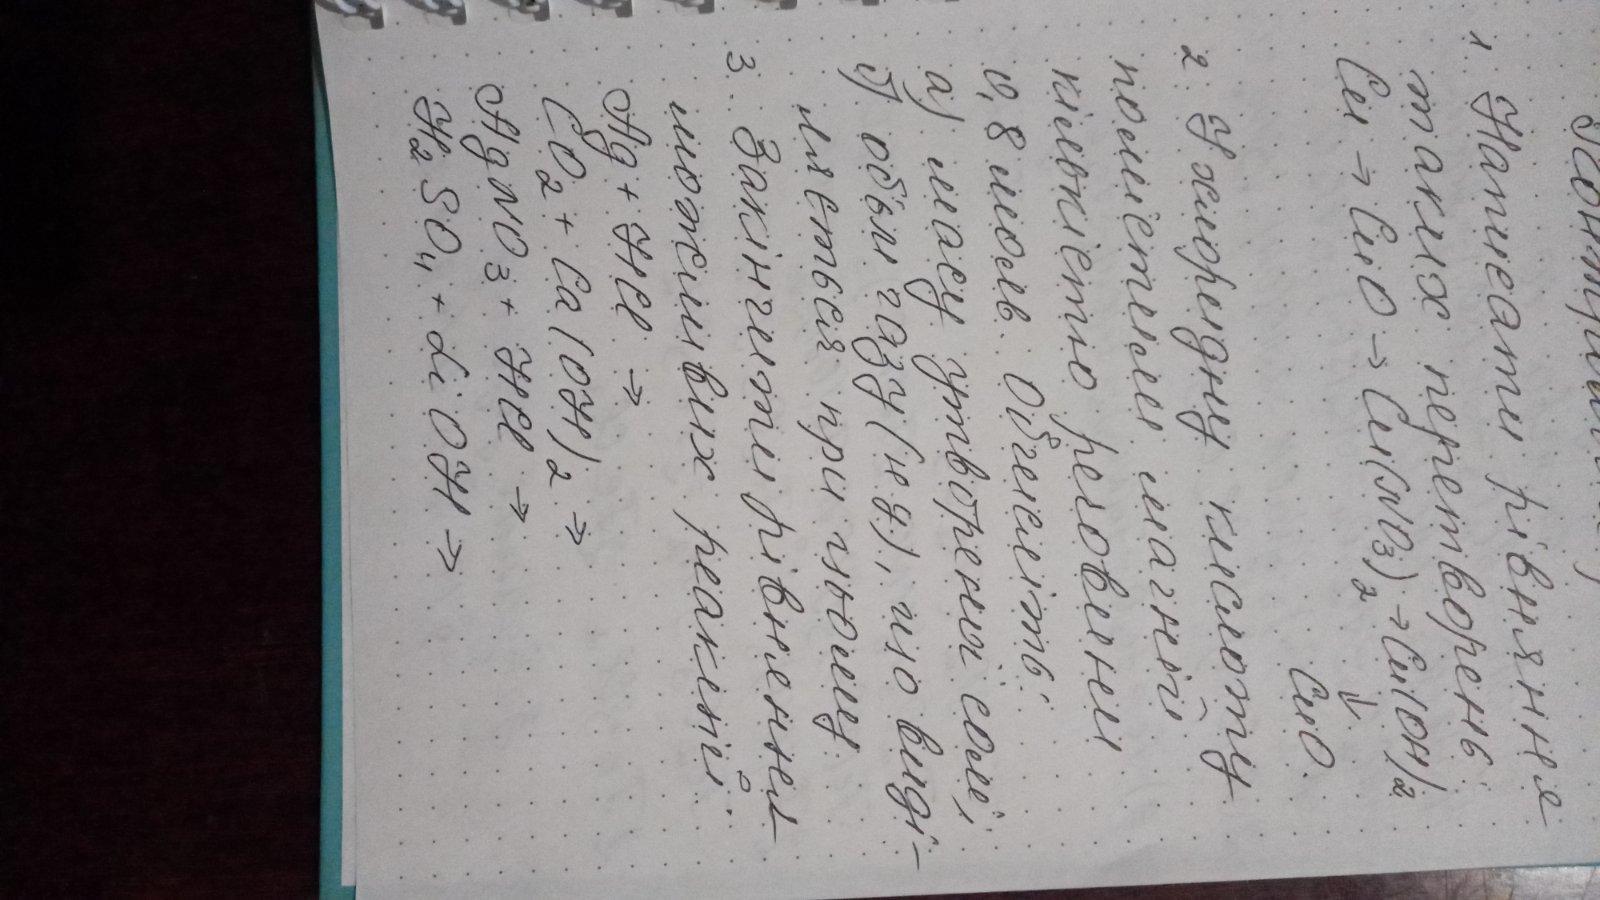 1. Написати рівняння
таких перетворень:
Cu → CuO → Cu(NO3)2 → Cu(OH)2
↓
CuO.
2. У хлоридну кислоту
помістили магній
кількістю речовини
0,8 моль. Обчисліть:
а) масу утвореної солі;
б) обєм газу (н.у), що виді-
ляється при цьому.
3. Закінчити рівнення
можливих реакцій:
Ag + HCl →
CO2 + Ca(OH)2 →
AgNO3 + HCl →
H2SO4 + LiOH →